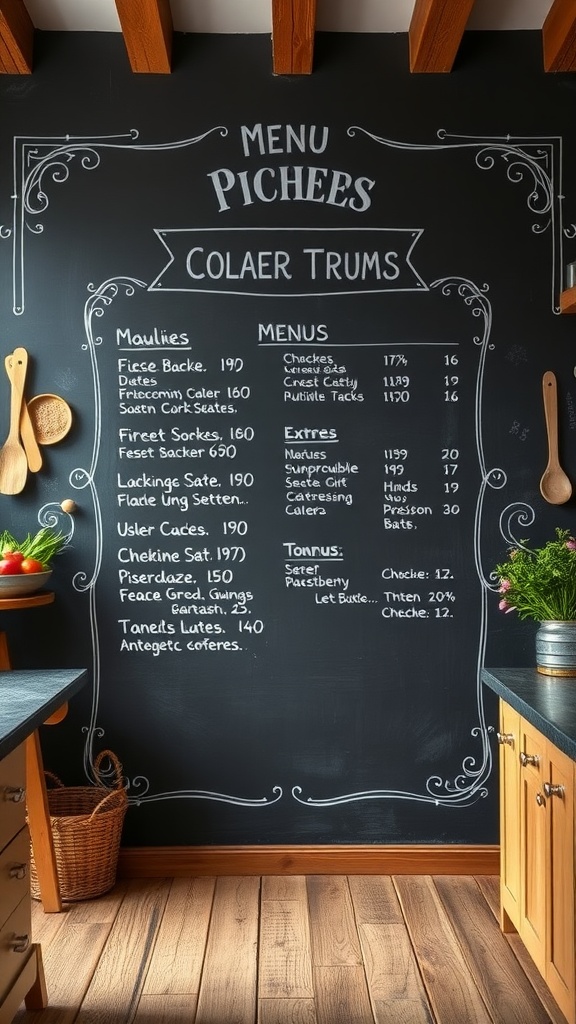 MENU
PICHEES
COLAER TRUMS
Maulies
Fiese Backe. 190
Dates
Friescemin Caler 160
Sastn Cork Seates.
Fireet Sorkes. 160
Feset Sacker 650
Lackinge Sate. 190
Flade Ung Setten..
Usler Cacles. 190
Chekine Sat. 197)
Piserdaze. 150
Feace Gred. Gwings
Eartash. 25.
Taneils Lutes. 140
Antegetc coferes..
MENUS
Chackes 17% 16
Crest Catty 1189 19
Putinle Tacks 1170 16
Extres
Malus 1159 20
Sunproulble 199 17
Secte Girt Hinds 19
Catresing
Calerz Presson 30
Bats.
Tonnus.
Seref Chocke: 12.
Pastberny
Let Buste... Thten 20%
Chcche: 12.